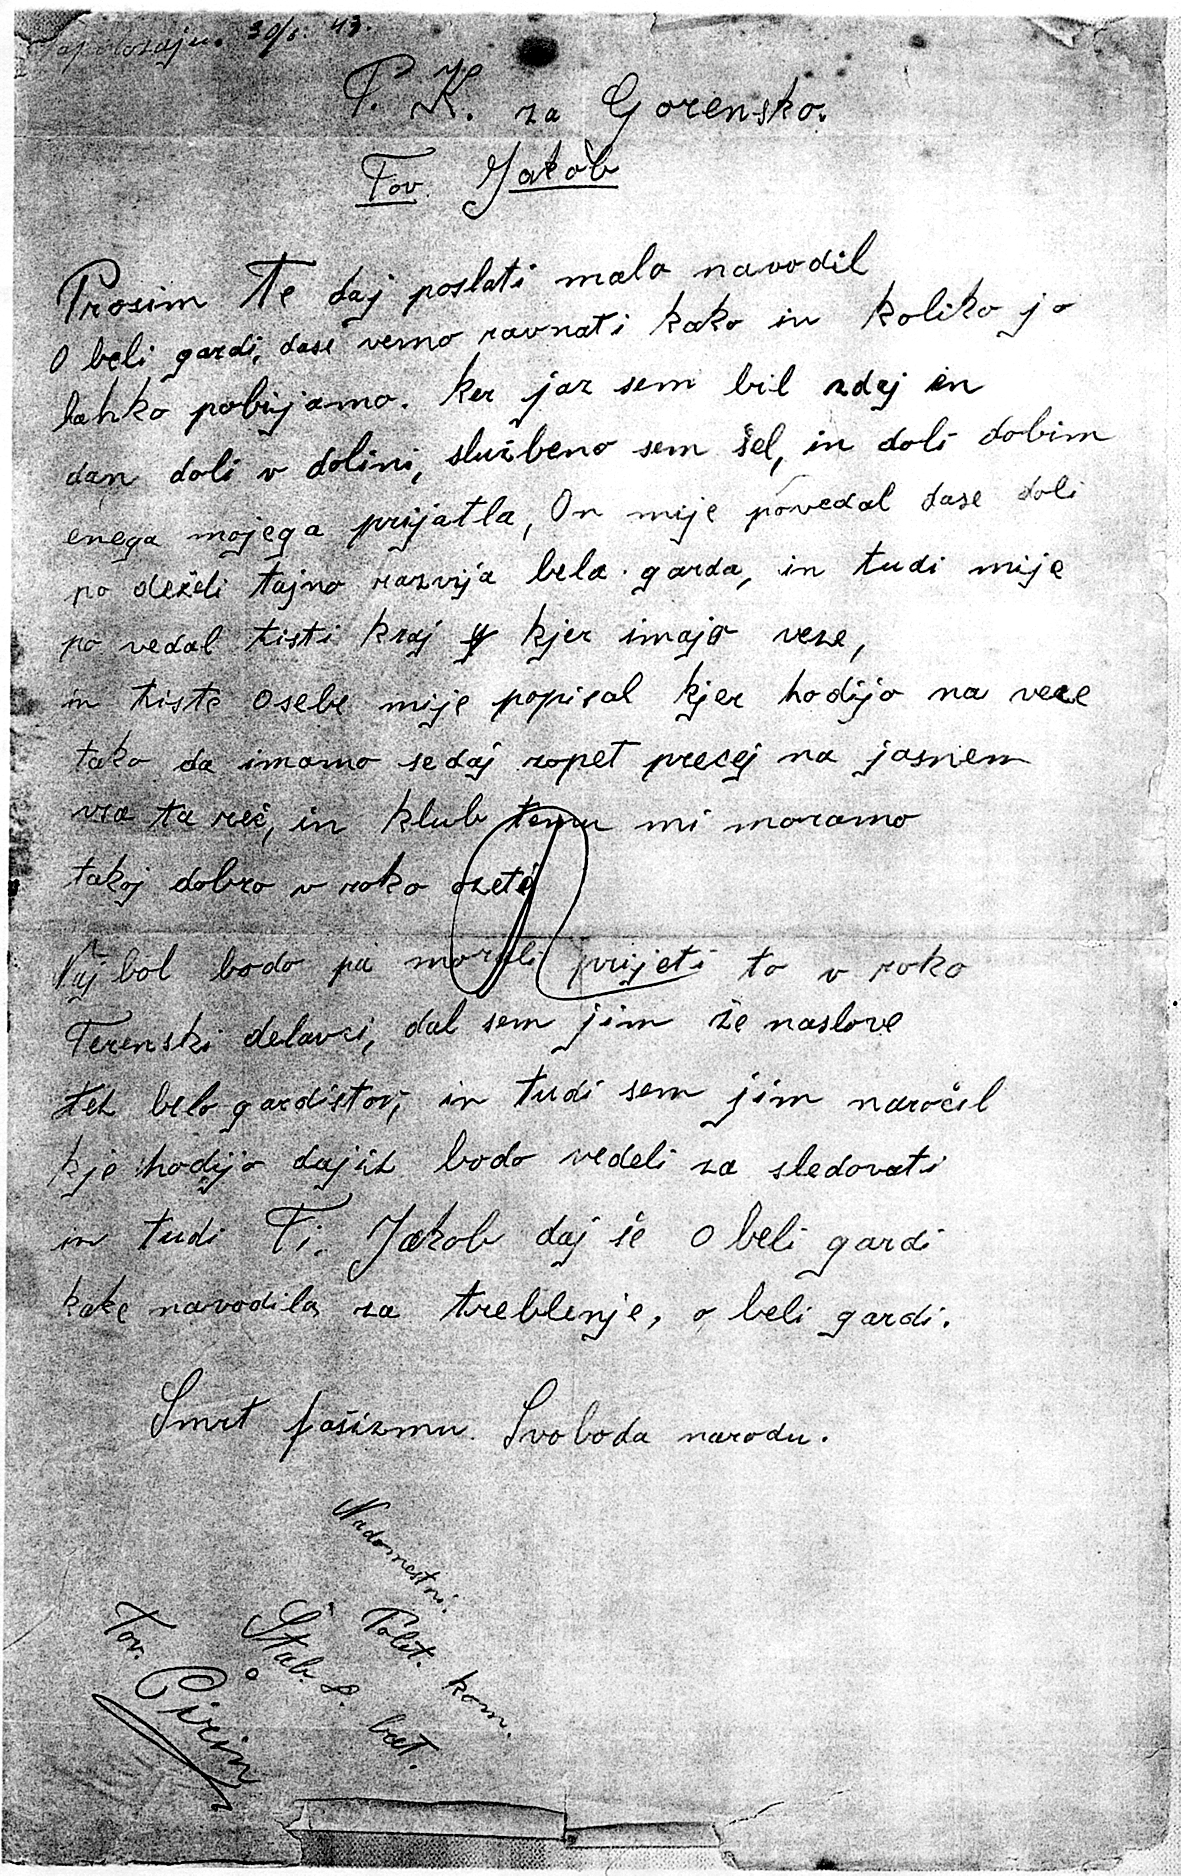 na položaju. 30/6. 43.
P. K. za Gorensko.
Tov. Jakob
Prosim Te daj poslati malo navodil
O beli gardi, dase vemo ravnati kako in koliko jo
lahko pobijamo. ker jaz sem bil zdaj en
dan doli v dolini, službeno sem šel, in doli dobim
enega mojega prijatla, On mije povedal dase doli
po deželi tajno razvija bela garda, in tudi mije
po vedal tisti kraj kjer imajo veze,
in tiste osebe mije popisal kjer hodijo na veze
tako da imamo sedaj zopet precej na jasnem
vso ta reč, in klub temu mi moramo
takoj dobro v roko vzeti
Naj bol bodo pa morali prijeti to v roko
Terenski delavci, dal sem jim že naslove
teh belo gardistov, in tudi sem jim naročil
kje hodijo dajih bodo vedeli za sledovati
in tudi Ti. Jakob daj še O beli gardi
kake navodila za treblenje, o beli gardi.
Smrt fašizmu. Svoboda narodu.
Nadomestni.
Polit. kom.
Štab. 2. bat.
Tov. Pirin